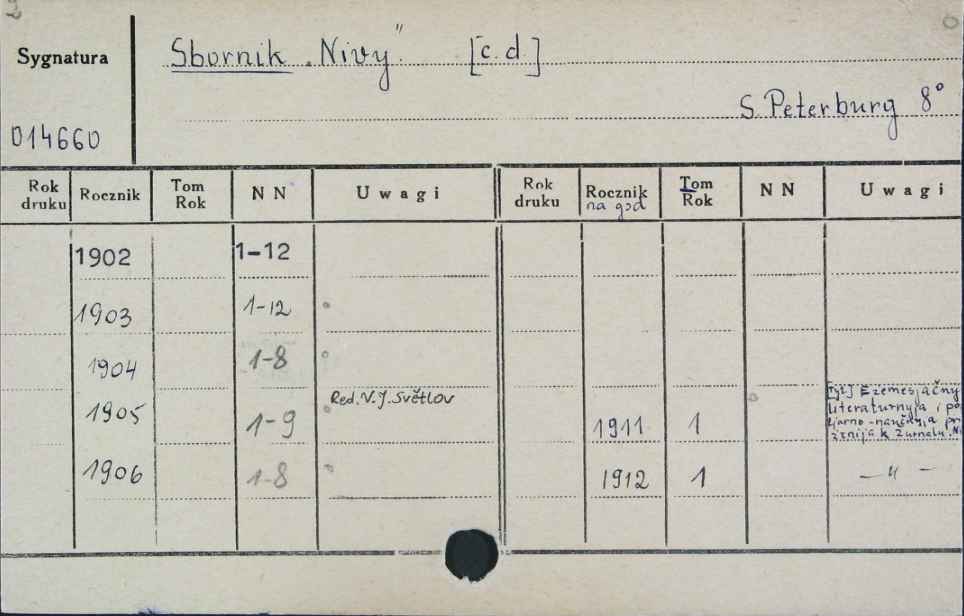 Sygnatura
Sbornik „Nivy" [c.d]
S. Peterburg 8°
014660
Rok druku Rocznik Tom Rok NN Uwagi Rok druku Rocznik na god Tom Rok NN Uwagi
1902 1-12
1903 1-12
1904 1-8
1905 1-9 Red. V. J. Světlov 1911 1 [Tyt.] Ežemesjačnyja
literaturnyja i po
ljarno-naučnyja pri
ženija k žurnalu „Ni
1906 1-8 1912 1 — " —